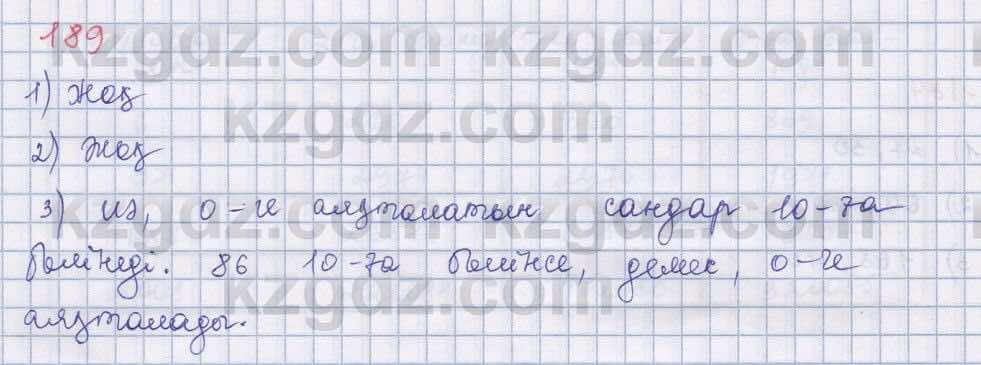 189
kzgdz.com kzgdz.com
1) жоқ
kzgdz.com
2) жоқ
3) иә, 0-ге аяқталатын сандар 10-ға
бөлінеді. 86 10-ға бөлінсе, демек, 0-ге
kzgdz.com kzgdz.com
аяқталады.
kzgdz.com